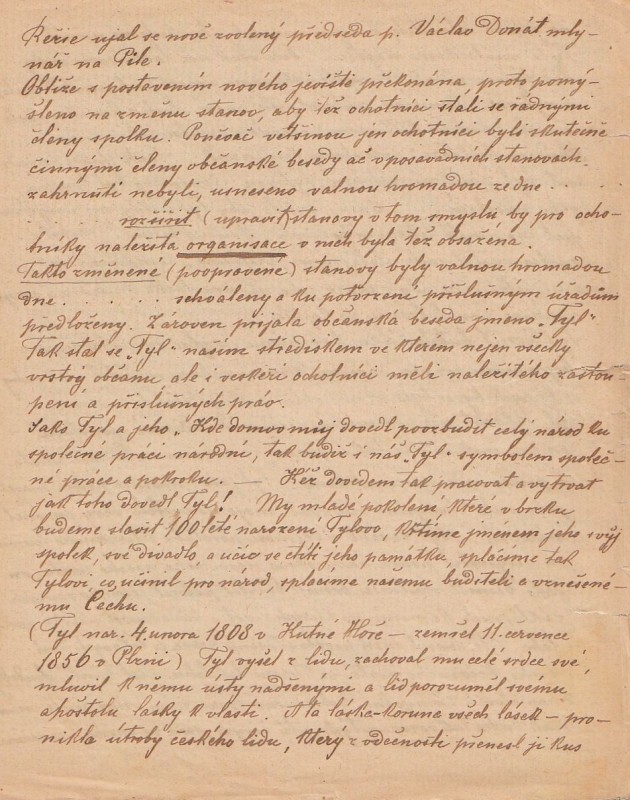 Režie ujal se nově zvolený předseda p. Václav Donát mly-
nář na Pile.
Obtíže s postavením nového jeviště překonána, proto pomý-
šleno na změnu stanov, aby též ochotníci stali se řádnými
členy spolku. Poněvač většinou jen ochotníci byli skutečně
činnými členy občanské besedy ač v posavádních stanovách
zahrnuti nebyli, usneseno valnou hromadou ze dne . .
. . . . . rozšířit (upravit) stanovy v tom smyslu, by pro ocho-
tníky naležitá organisace v nich byla též obsažena.
Takto změněné (poopravené) stanovy byly valnou hromadou
dne . . . . . schváleny a ku potvrzení příslušným úřadům
předloženy. Zároven přijala občanská beseda jmeno „Tyl"
Tak stal se „Tyl" naším střediskem ve kterém nejen všecky
vrstvy občanu, ale i veskeří ochotníci měli naležitého zastou-
pení a příslušných práv.
Jako Tyl a jeho „Kde domov můj dovedl povzbudit celý národ ku
společné práci národní, tak budiž i náš „Tyl" symbolem společ-
né práce a pokroku. — Kéž dovedem tak pracovat a vytrvat
jak toho dovedl Tyl! My mladé pokolení, které v brzku
budeme slavit 100leté narození Tylovo, křtíme jménem jeho svůj
spolek, své divadlo, a účiv se ctíti jeho památku, splácíme tak
Tylovi, co, učinil pro národ, splácíme našemu buditeli a vznešené-
mu Čechu.
(Tyl nar. 4. unora 1808 v Kutné Hoře — zemřel 11. července
1856 v Plzni) Tyl vyšel z lidu, zachoval mu celé srdce své,
mluvil k němu ústy nadšenými a lid porozuměl svému
apoštolu lásky k vlasti. A ta láska-koruna všech lásek — pro-
nikla útroby českého lidu, který z vděčnosti přenesl ji kus